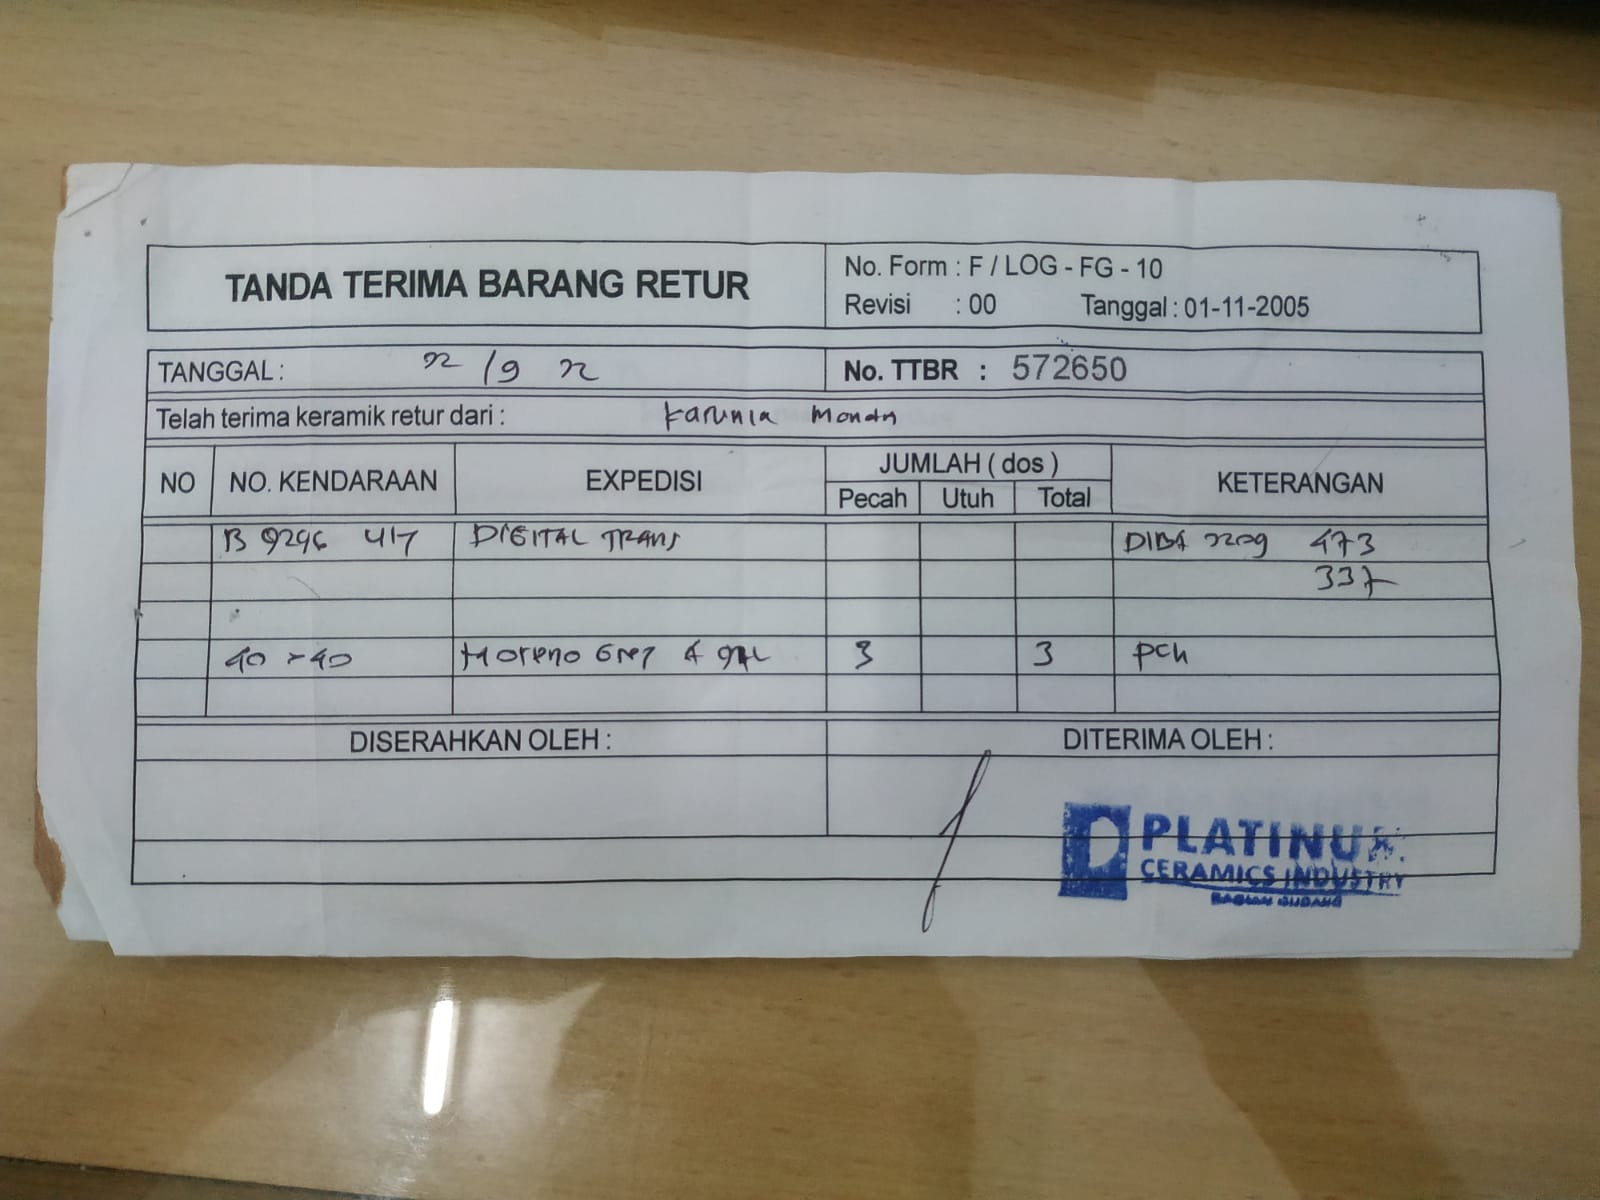 TANDA TERIMA BARANG RETUR
No. Form : F / LOG - FG - 10
Revisi : 00 Tanggal : 01-11-2005
TANGGAL : 22 / 9 22
No. TTBR : 572650
Telah terima keramik retur dari : Karunia
NO NO. KENDARAAN EXPEDISI JUMLAH ( dos ) KETERANGAN
Pecah Utuh Total
B 9296 DIGITAL TRANS 2209 473
337
40 x 40 Moreno Grey 3 3 pch
DISERAHKAN OLEH : DITERIMA OLEH :
PLATINUM
CERAMICS INDUSTRY
BAGIAN GUDANG